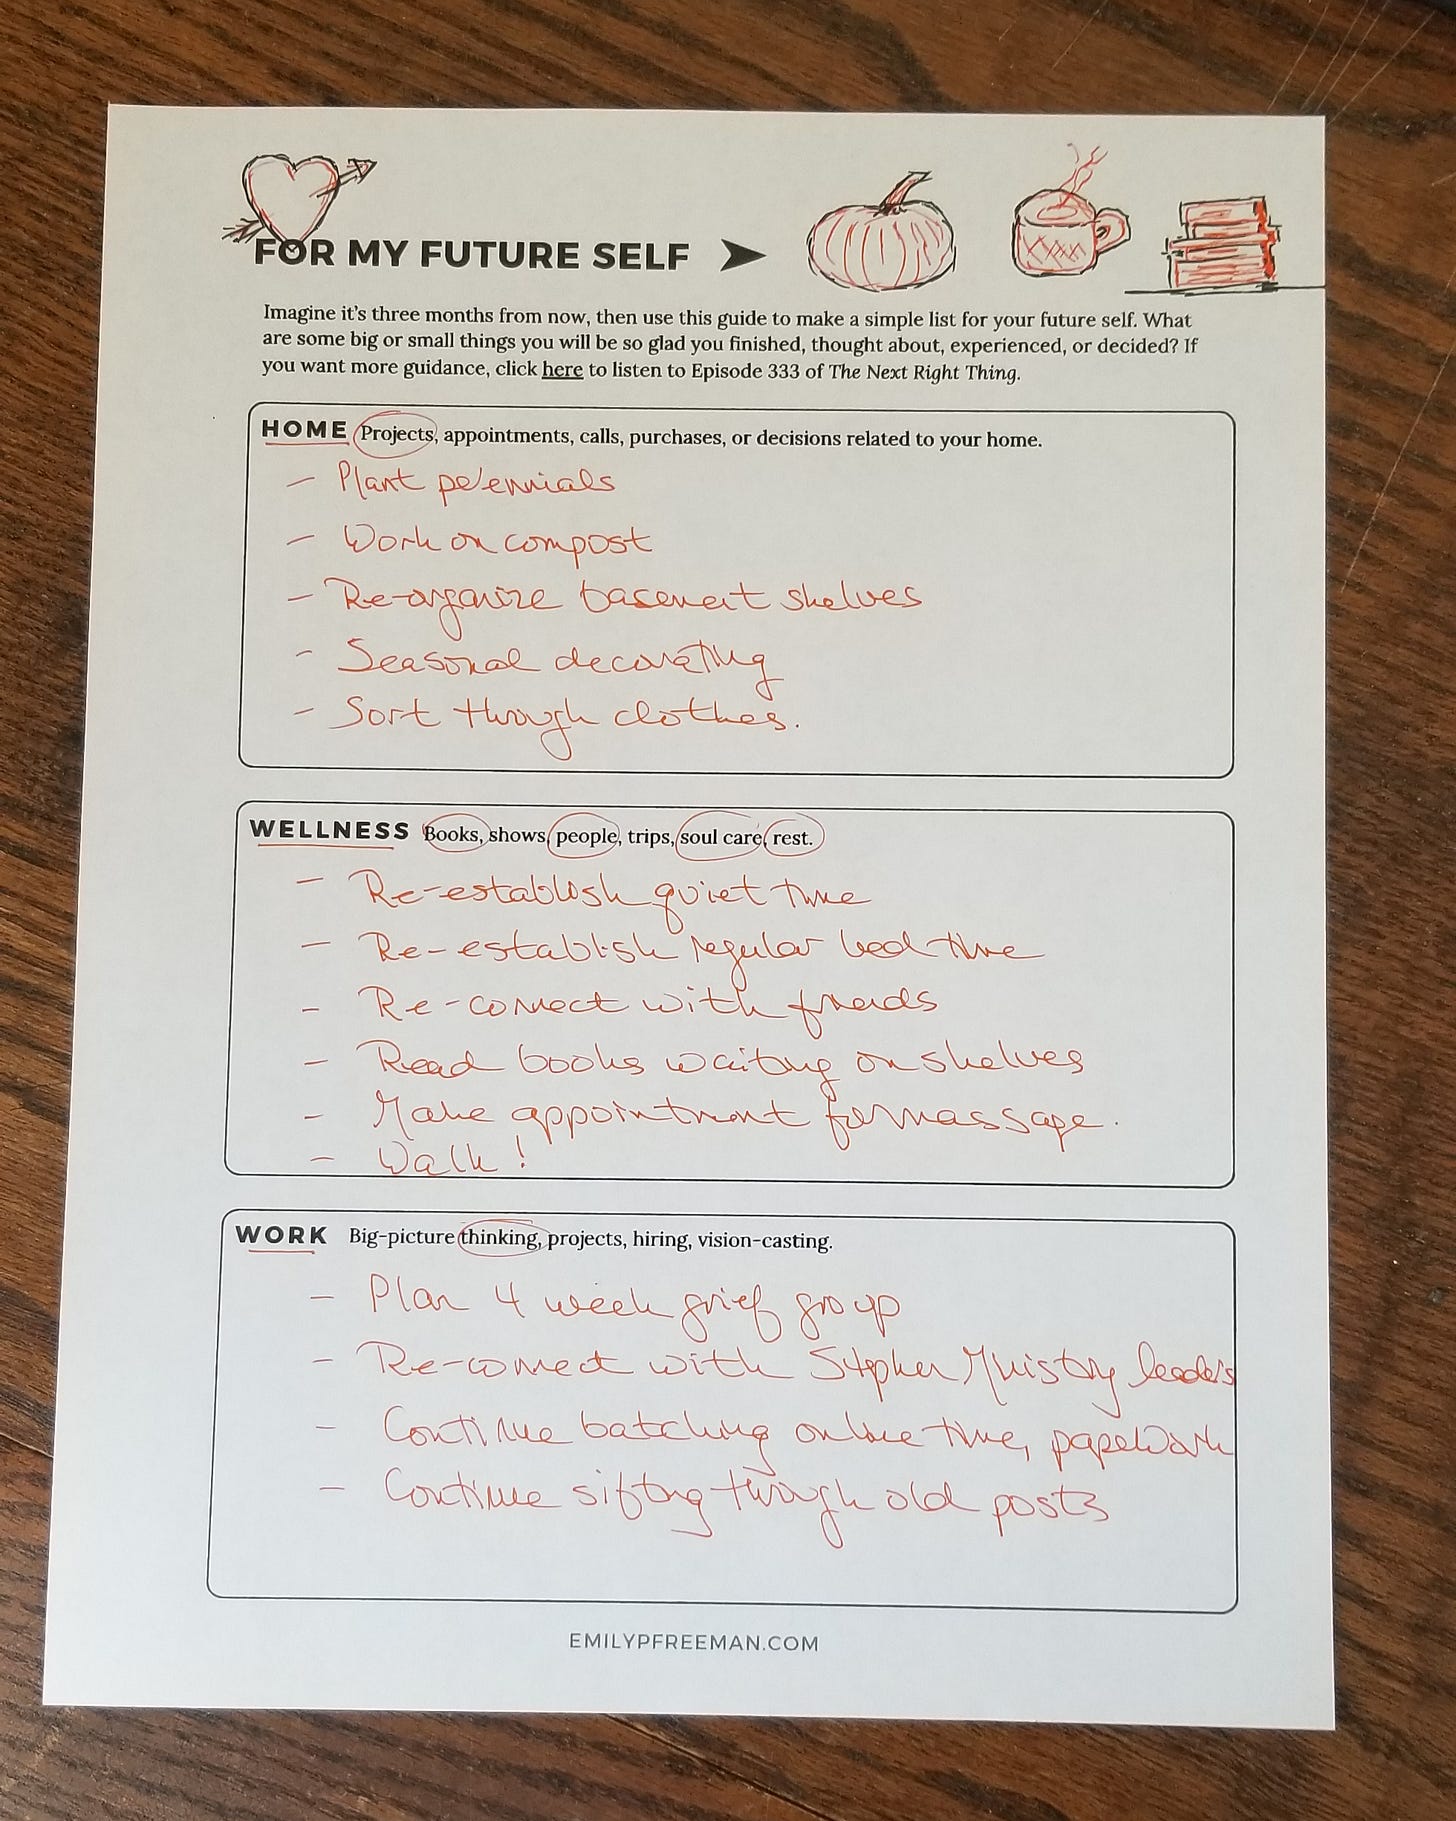 FOR MY FUTURE SELF
Imagine it's three months from now, then use this guide to make a simple list for your future self. What
are some big or small things you will be so glad you finished, thought about, experienced, or decided? If
you want more guidance, click here to listen to Episode 333 of The Next Right Thing.
HOME Projects, appointments, calls, purchases, or decisions related to your home.
- Plant perennials
- Work on compost
- Re-organize basement shelves
- Seasonal decorating
- Sort through clothes.
WELLNESS Books, shows, people, trips, soul care, rest.
- Re-establish quiet time
- Re-establish regular bed time
- Re-connect with friends
- Read books waiting on shelves
- Make appointment for massage.
- Walk!
WORK Big-picture thinking, projects, hiring, vision-casting.
- Plan 4 week grief group
- Re-connect with Stephen Ministry leaders
- Continue batching online time, paperwork
- Continue sifting through old posts
EMILYPFREEMAN.COM